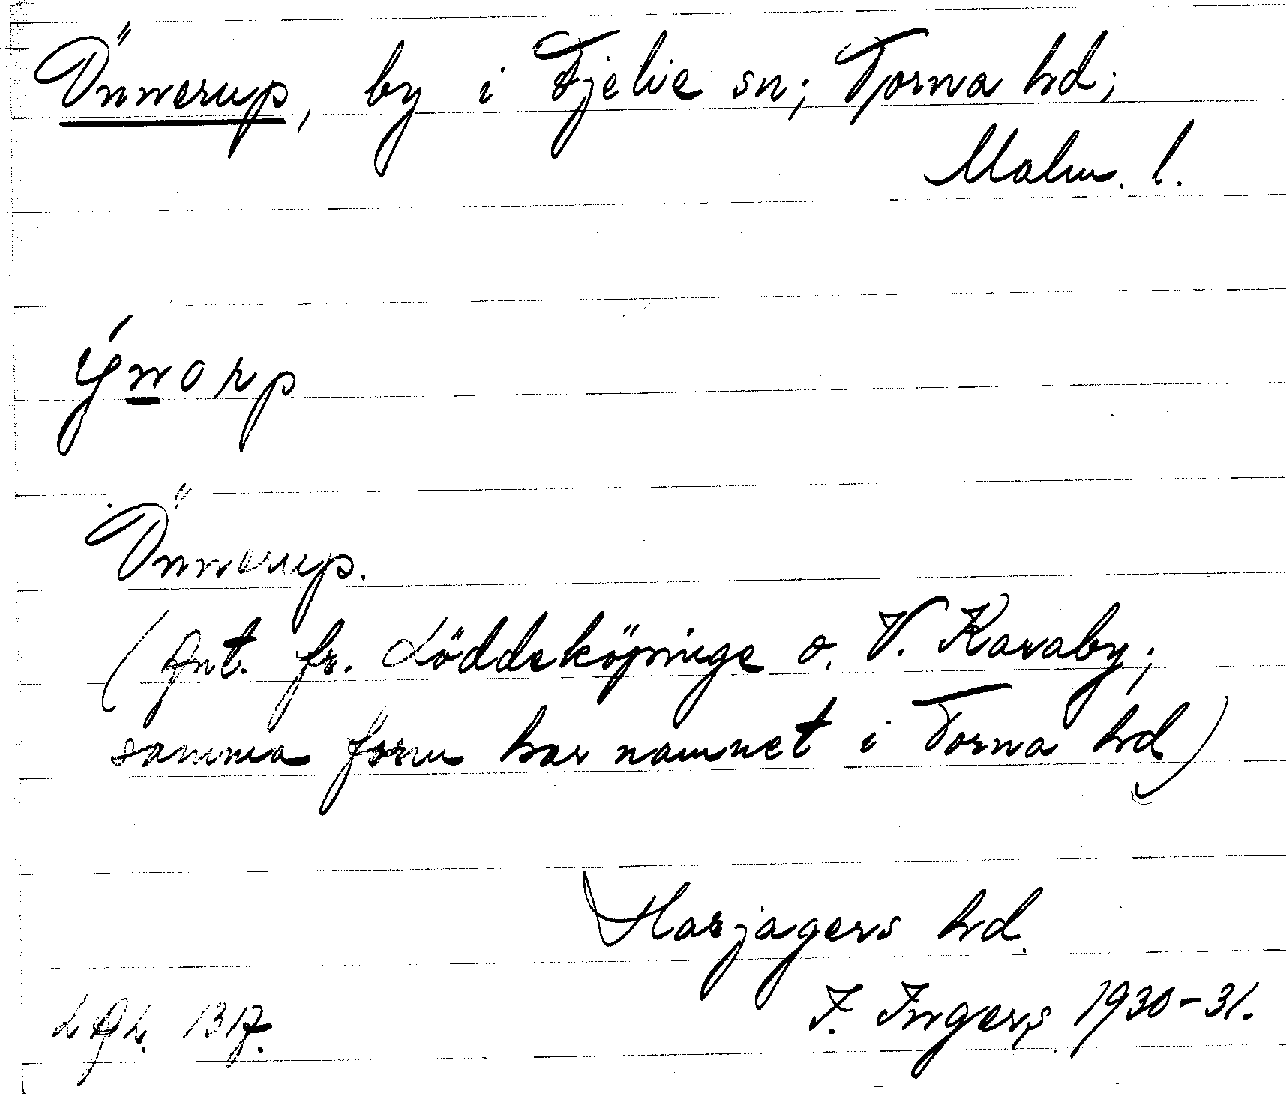 Önnerup, by i Fjelie sn; Torna hd;
Malm. l.
ýnorp
Önnerup.
(Ant. fr. Löddeköpinge o. V. Karaby;
samma form har namnet i Torna hd)
Harjagers hd.
LAL. 1317.
I. Ingers 1930-31.